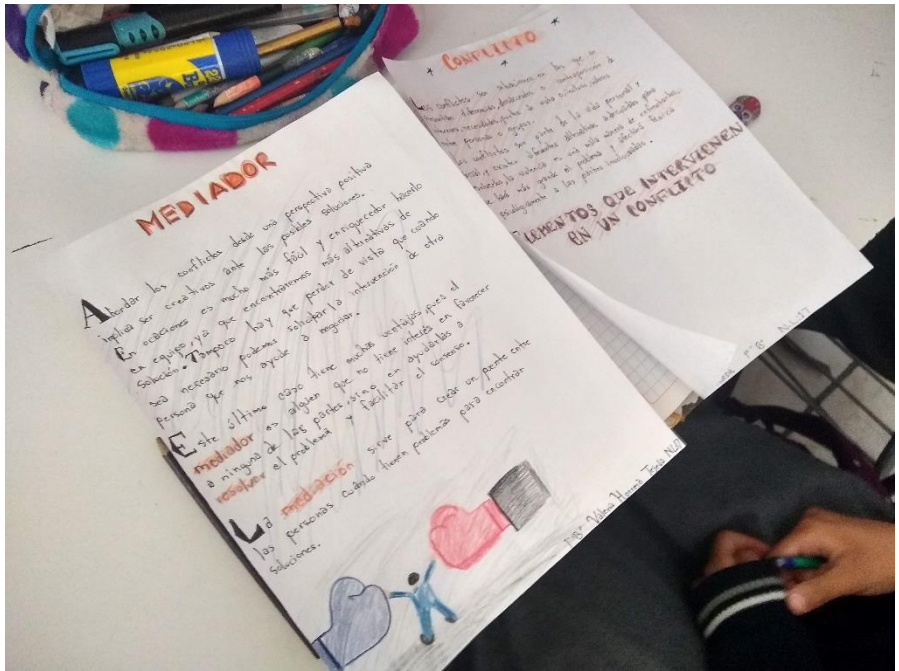 MEDIADOR
Abordar los conflictos desde una perspectiva positiva
implica ser creativos ante las posibles soluciones.
En ocaciones es mucho más fácil y enriquecedor hacerlo
en equipo, ya que encontraremos más alternativas de
solución. Tampoco hay que perder de vista que cuando
sea necesario podemos solicitar la intervención de otra
persona que nos ayude a negociar.
Este último caso tiene muchas ventajas, pues el
mediador es alguien que no tiene interés en favorecer
a ninguna de las partes, sino en ayudarlas a
resolver el problema y facilitar el consenso.
La mediación sirve para crear un puente entre
las personas cuando tienen problemas para encontrar
soluciones.
Valeria NL17
CONFLICTO
Los conflictos son situaciones en las que se
diferencias, o contraposición de
necesidades, gustos
personas o grupos.
conflictos son parte de la vida personal y
y existen diferentes alternativas adecuadas para
la violencia es una mala manera de enfrentarlos,
hará más grande el problema y afectará física
psicológicamente a las partes involucradas.
ELEMENTOS QUE INTERVIENEN
EN UN CONFLICTO
NL17